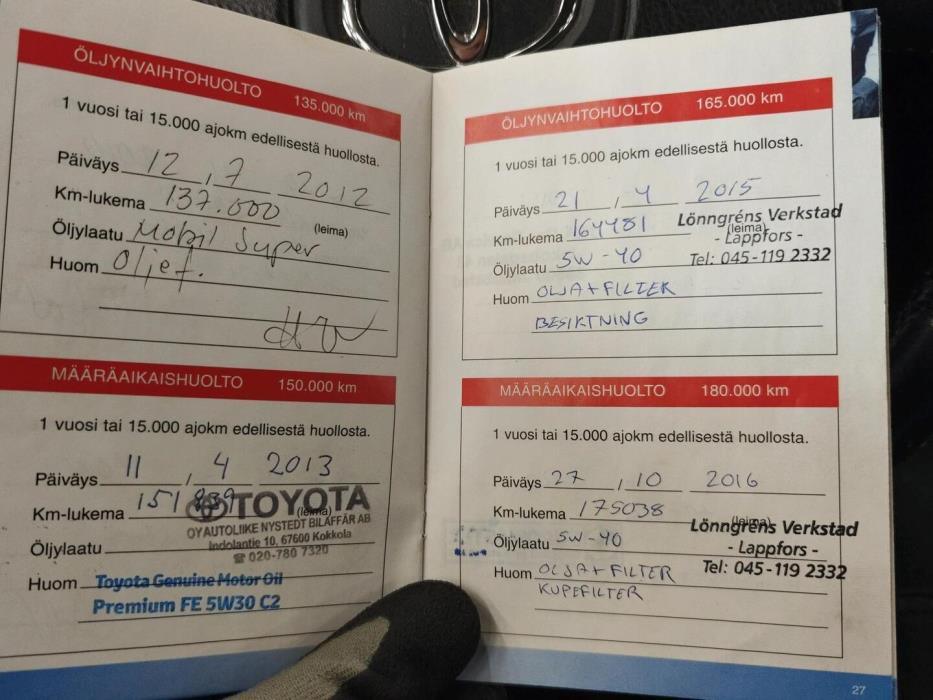 ÖLJYNVAIHTOHUOLTO 135.000 km
1 vuosi tai 15.000 ajokm edellisestä huollosta.
Päiväys 12 , 7 2012
Km-lukema 137.000
(leima)
Öljylaatu Mobil Super
Huom Oljef.
MÄÄRÄAIKAISHUOLTO 150.000 km
1 vuosi tai 15.000 ajokm edellisestä huollosta.
Päiväys 11 , 4 2013
Km-lukema 151839 (leima)
TOYOTA
OY AUTOLIIKE NYSTEDT BILAFFÄR AB
Indolantie 10, 67600 Kokkola
☎ 020-780 7320
Öljylaatu
Huom Toyota Genuine Motor Oil
Premium FE 5W30 C2
ÖLJYNVAIHTOHUOLTO 165.000 km
1 vuosi tai 15.000 ajokm edellisestä huollosta.
Päiväys 21 , 4 2015
Km-lukema 164481 (leima)
Lönngréns Verkstad
- Lappfors -
Tel: 045-119 2332
Öljylaatu 5W-40
Huom OLJA+FILTER
BESIKTNING
MÄÄRÄAIKAISHUOLTO 180.000 km
1 vuosi tai 15.000 ajokm edellisestä huollosta.
Päiväys 27 , 10 2016
Km-lukema 175038 (leima)
Lönngréns Verkstad
- Lappfors -
Tel: 045-119 2332
Öljylaatu 5W-40
Huom OLJA+FILTER
KUPEFILTER
27